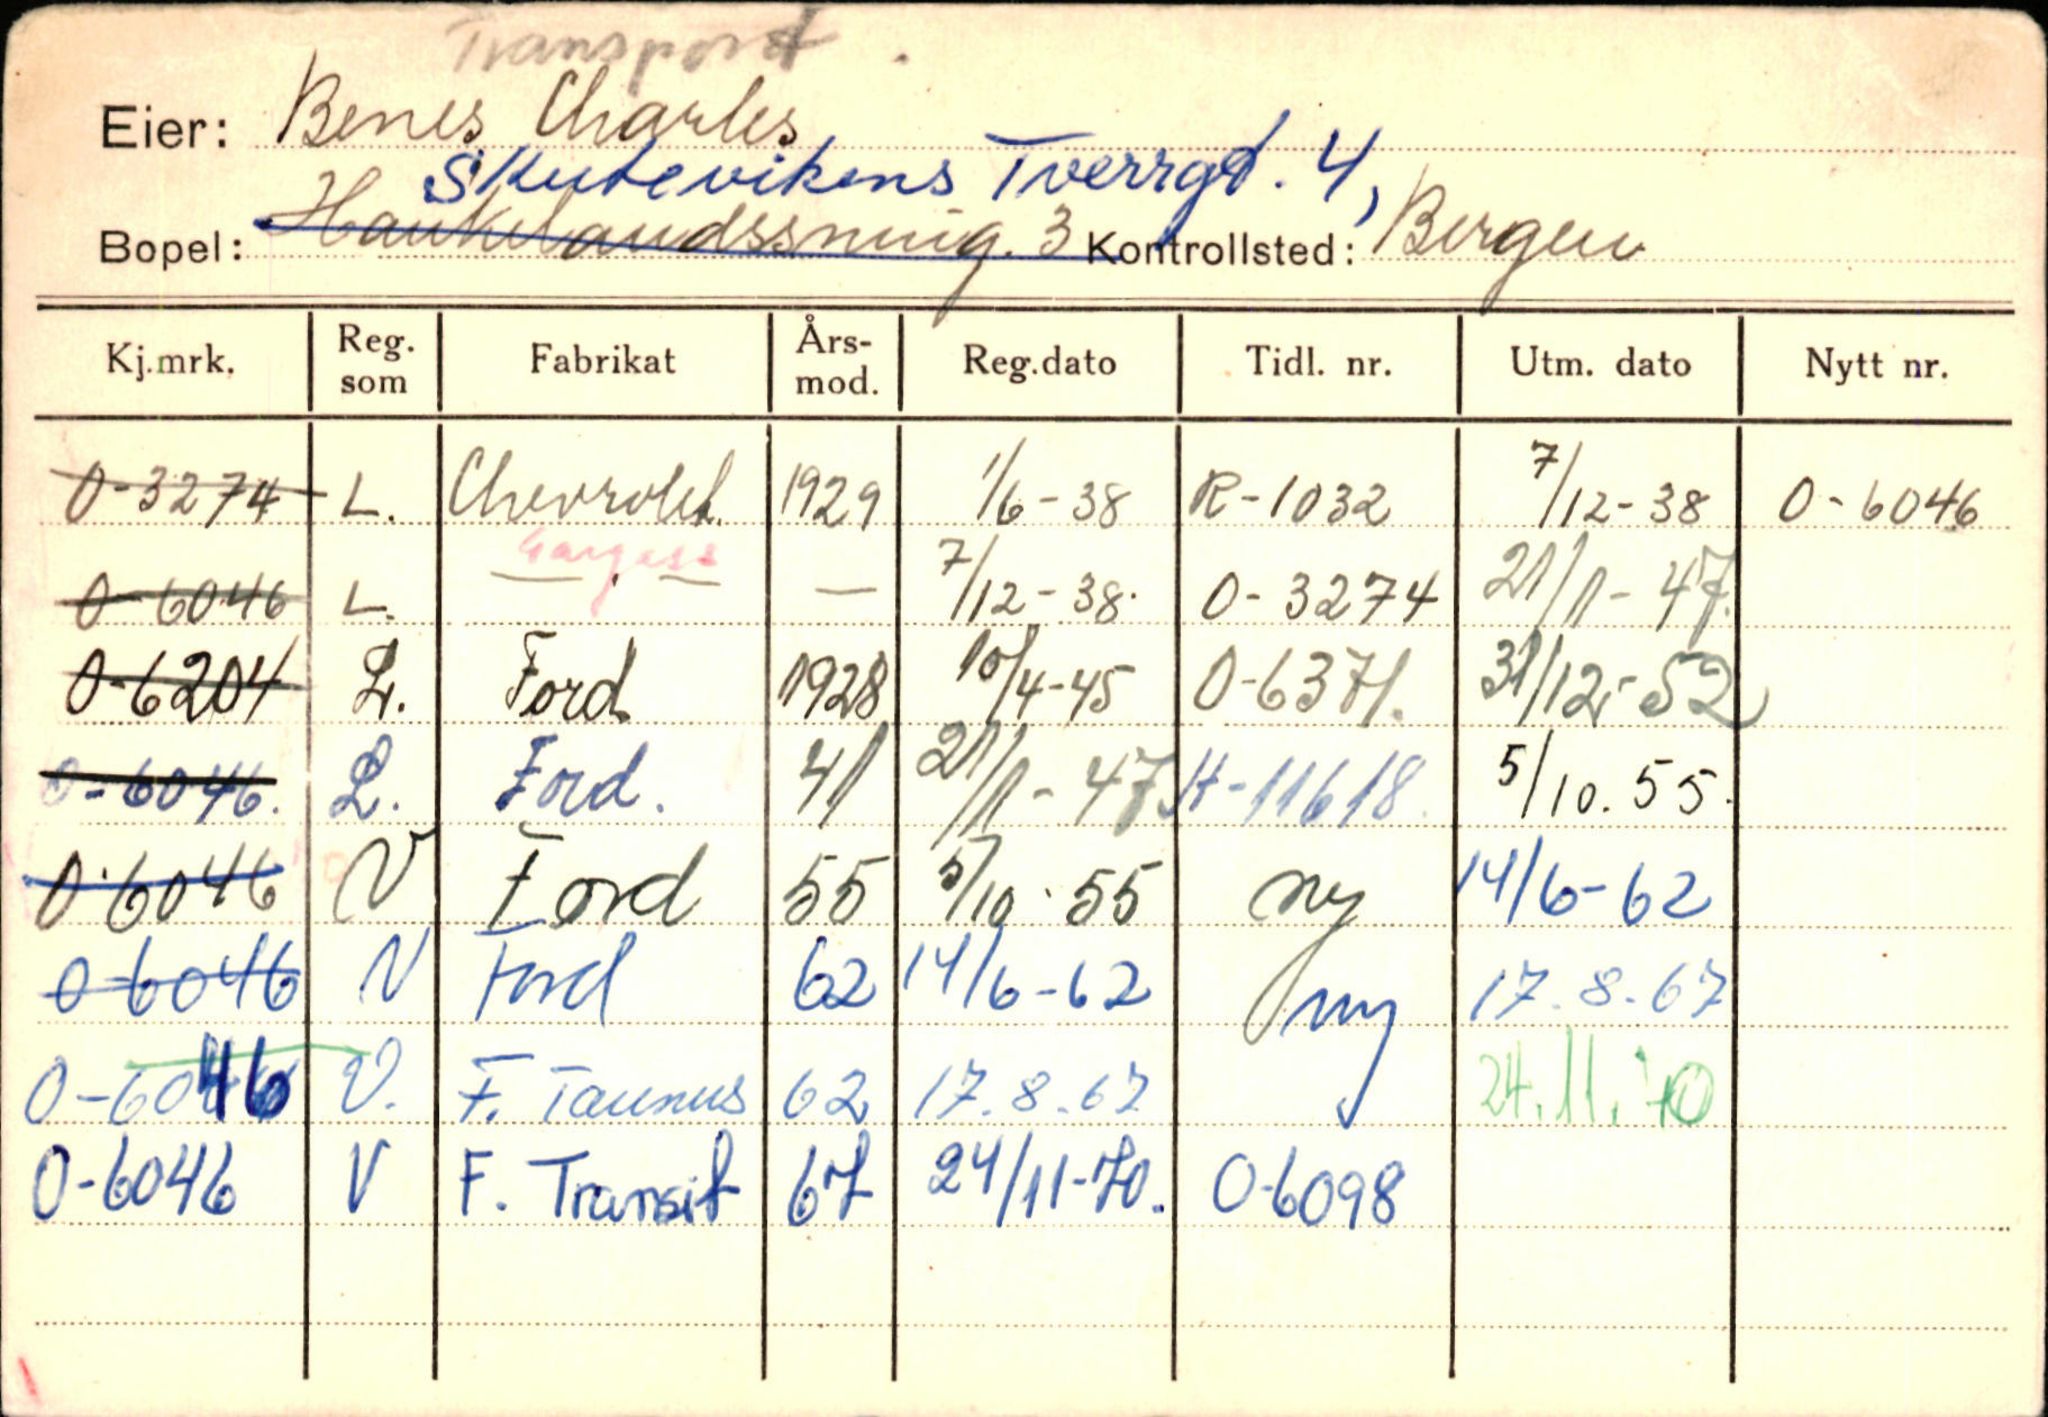 Transport
Eier: Benes Charles
Skutevikens Tverrgt. 4,
Bopel: Haukelandssmug. 3 Kontrollsted: Bergen
Kj.mrk. Reg. som Fabrikat Års-mod. Reg.dato Tidl. nr. Utm. dato Nytt nr.
O-3274 L. Chevrolet. 1929 1/6-38 R-1032 7/12-38 O-6046
O-6046 L. — " — — 7/12-38. O-3274 21/1-47.
O-6204 L. Ford 1928 10/4-45 O-6371. 31/12-52
O-6046. L. Ford. 41 21/1-47 H-11618. 5/10.55.
O-6046 V Ford 55 5/10.55 ny 14/6-62
O-6046 V Ford 62 14/6-62 ny 17.8.67
O-6046 V. F. Taunus 62 17.8.67 24.11.70
O-6046 V F. Transit 67 24/11-70. O-6098